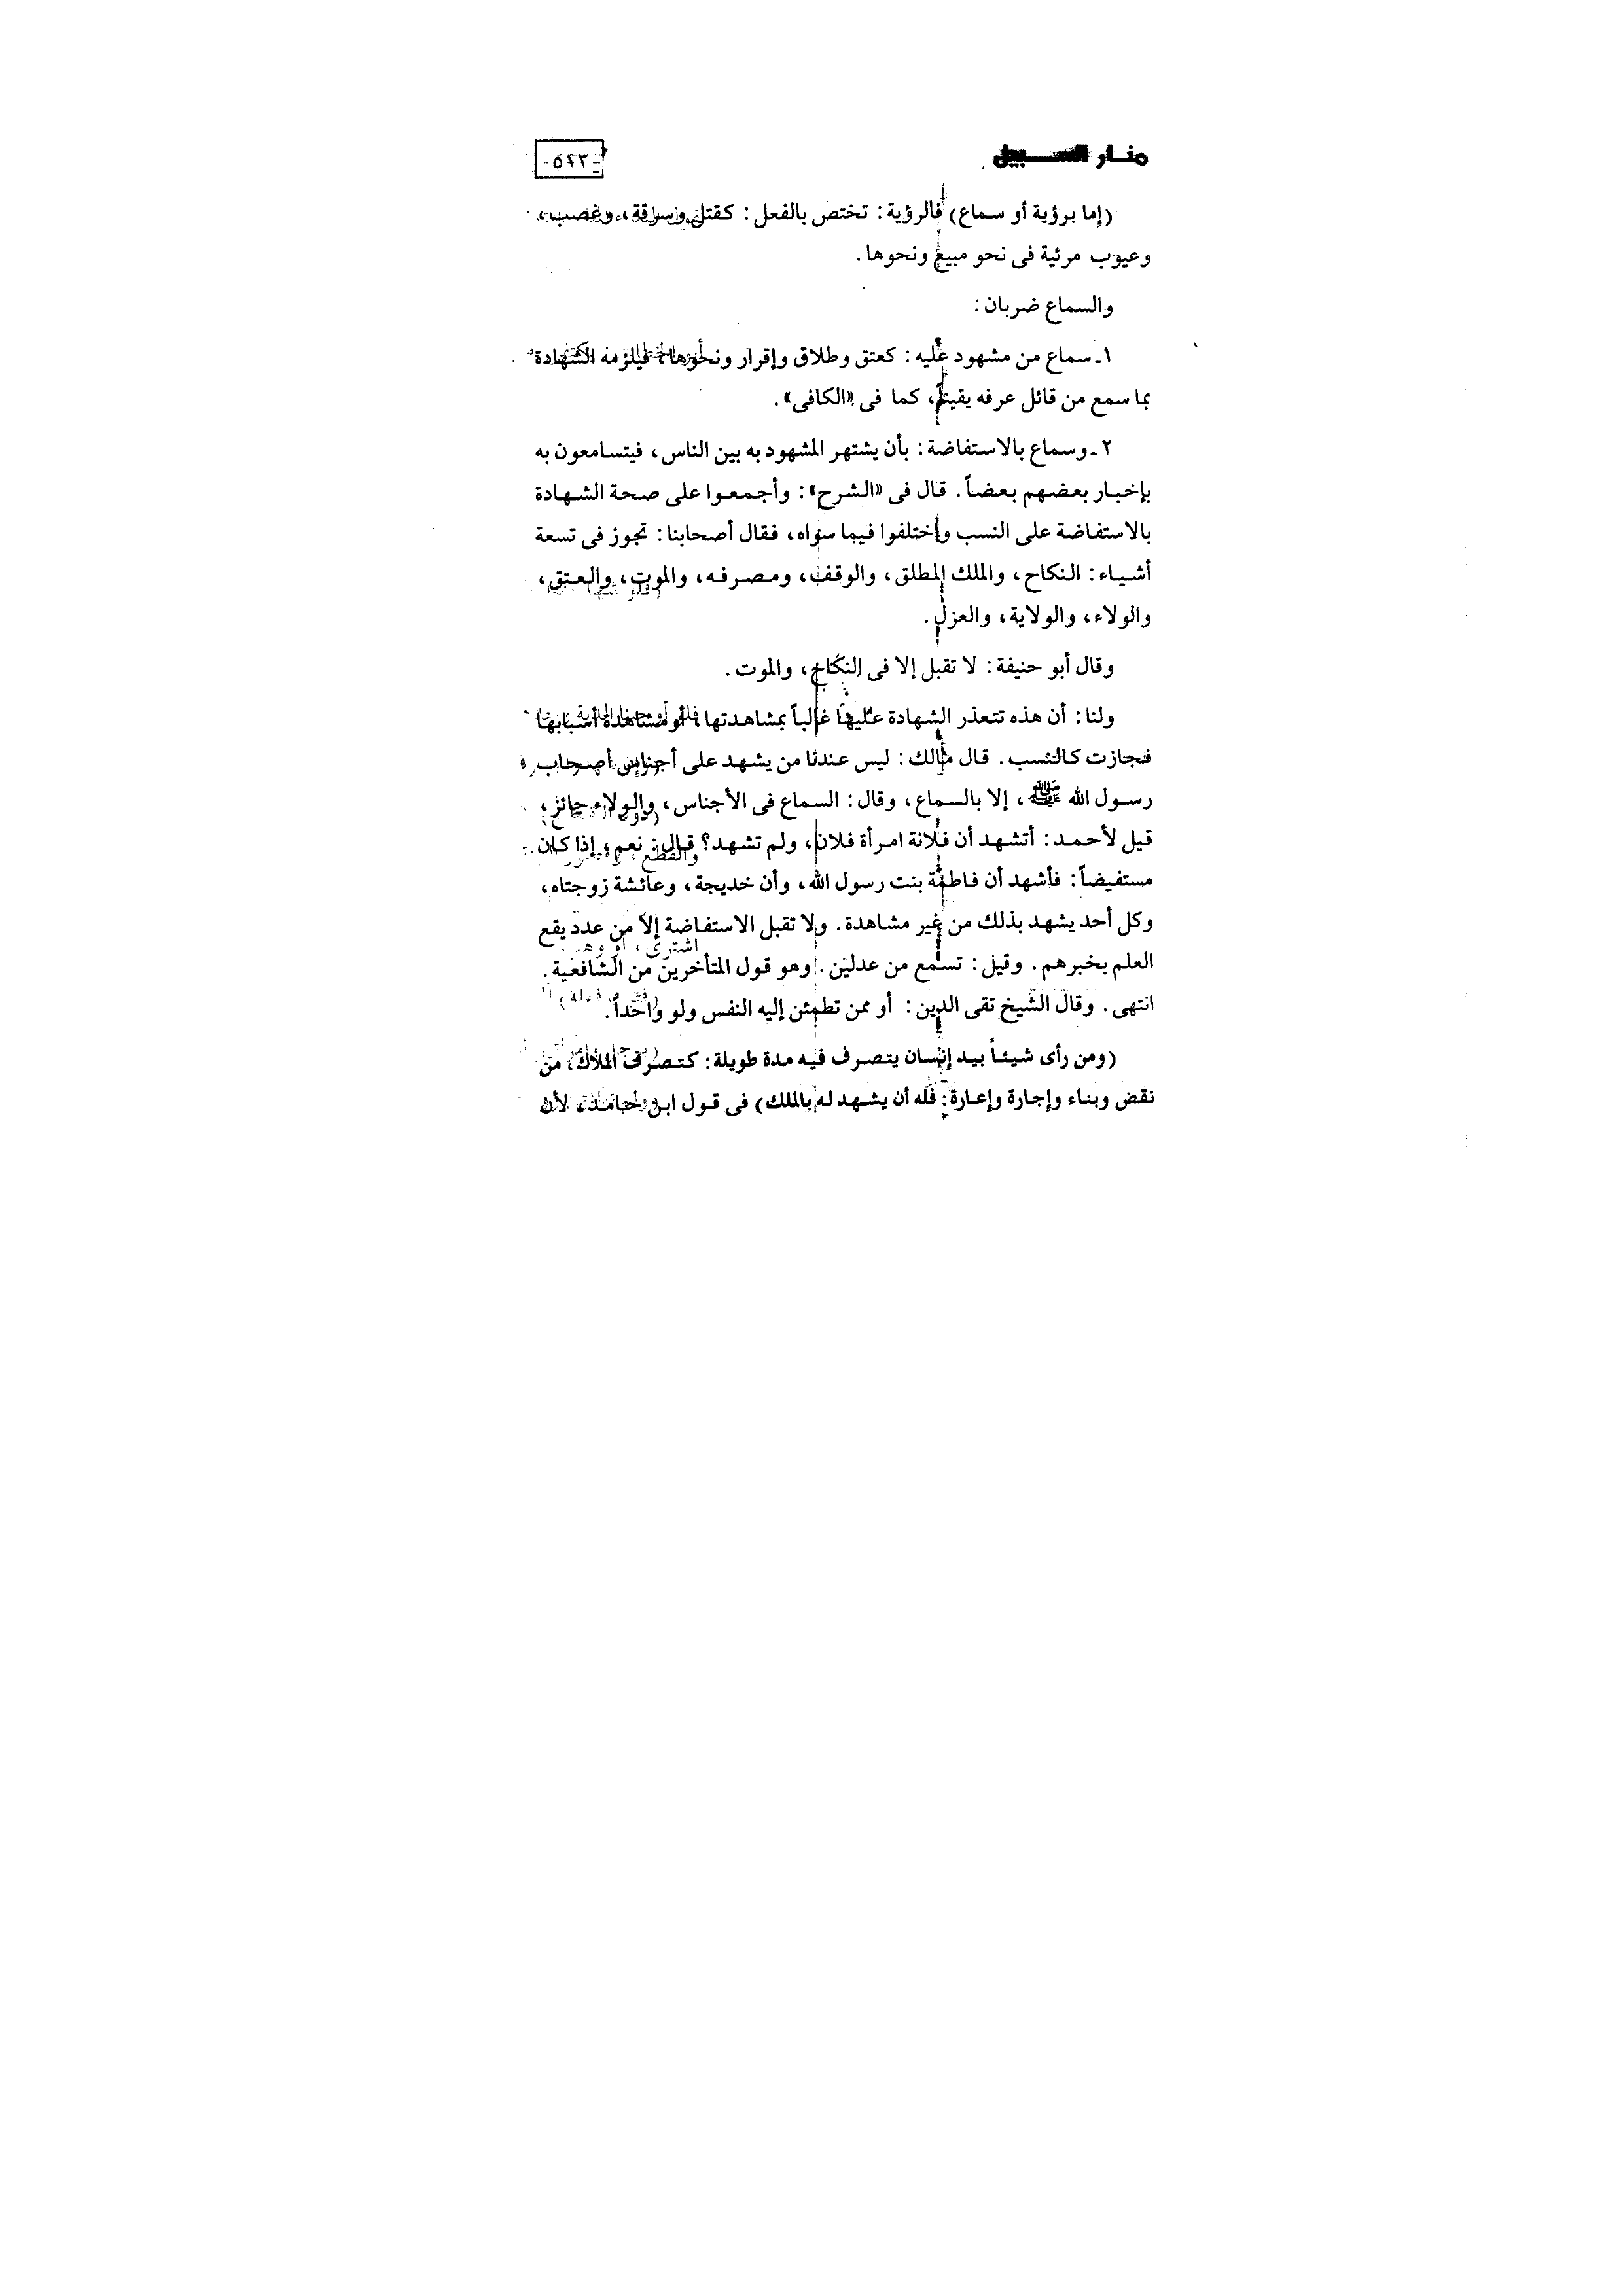 منار السبيل
-٥٤٣-
(إما برؤية أو سماع) فالرؤية: تختص بالفعل: كقتل وسرقة، وغصب،
وعيوب مرئية فى نحو مبيع ونحوها.
والسماع ضربان:
١ـ سماع من مشهود عليه: كعتق وطلاق وإقرار ونحوها، فيلزمه الشهادة
بما سمع من قائل عرفه يقيناً، كما فى «الكافى».
٢ـ وسماع بالاستفاضة: بأن يشتهر المشهود به بين الناس، فيتسامعون به
بإخبار بعضهم بعضاً. قال فى «الشرح»: وأجمعوا على صحة الشهادة
بالاستفاضة على النسب واختلفوا فيما سواه، فقال أصحابنا: تجوز فى تسعة
أشياء: النكاح، والملك المطلق، والوقف، ومصرفه، والموت، والعتق،
والولاء، والولاية، والعزل.
وقال أبو حنيفة: لا تقبل إلا فى النكاح، والموت.
ولنا: أن هذه تتعذر الشهادة عليها غالباً بمشاهدتها، أو مشاهدة أسبابها
فجازت كالنسب. قال مالك: ليس عندنا من يشهد على أجناس أصحاب
رسول الله ﷺ، إلا بالسماع، وقال: السماع فى الأجناس، والولاء جائز،
قيل لأحمد: أتشهد أن فلانة امرأة فلان، ولم تشهد؟ قال: نعم، إذا كان
مستفيضاً: فأشهد أن فاطمة بنت رسول الله، وأن خديجة، وعائشة زوجتاه،
وكل أحد يشهد بذلك من غير مشاهدة. ولا تقبل الاستفاضة إلا من عدد يقع
العلم بخبرهم. وقيل: تسمع من عدلين. وهو قول المتأخرين من الشافعية.
انتهى. وقال الشيخ تقى الدين: أو ممن تطمئن إليه النفس ولو واحداً.
(ومن رأى شيئاً بيد إنسان يتصرف فيه مدة طويلة: كتصرف الملاك، من
نقض وبناء وإجارة وإعارة: فله أن يشهد له بالملك) فى قول ابن حامد، لأن